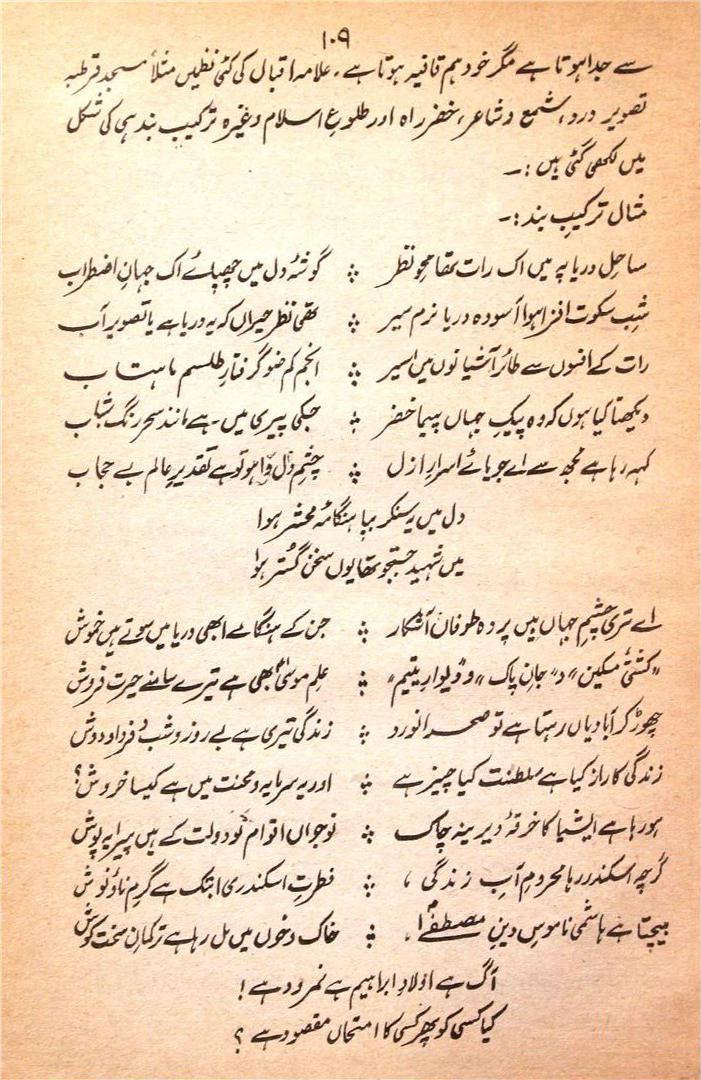 ۱۰۹
سے جدا ہوتا ہے مگر خود ہم قافیہ ہوتا ہے۔ علامہ اقبال کی کئی نظمیں مثلاً مسجد قرطبہ
تصویر درد، شمع و شاعر، خضر راہ اور طلوعِ اسلام وغیرہ ترکیب بند ہی کی شکل
میں لکھی گئی ہیں :۔
مثال ترکیب بند :۔
ساحلِ دریا پہ میں اک رات تھا محوِ نظر ؞ گوشۂ دل میں چھپائے اک جہانِ اضطراب
شب سکوت افزا ہوا آسودہ دریا نرم سیر ؞ تھی نظر حیراں کہ یہ دریا ہے یا تصویرِ آب
رات کے افسوں سے طائر آشیانوں میں اسیر ؞ انجم کم ضو گرفتارِ طلسمِ ماہتاب
دیکھتا کیا ہوں کہ وہ پیکِ جہاں پیما خضر ؞ جسکی پیری میں ہے مانندِ سحر رنگِ شباب
کہہ رہا ہے مجھ سے اے جویائے اسرارِ ازل ؞ چشمِ دل وا ہو تو ہے تقدیرِ عالم بے حجاب
دل میں یہ سنکر بپا ہنگامۂ محشر ہوا
میں شہیدِ جستجو تھا یوں سخن گستر ہوا
اے تری چشمِ جہاں بیں پر وہ طوفاں آشکار ؞ جن کے ہنگامے ابھی دریا میں سوتے ہیں خموش
"کشتیٔ مسکین" و "جانِ پاک" و "دیوارِ یتیم" ؞ علمِ موسیٰؑ بھی ہے تیرے سامنے حیرت فروش
چھوڑ کر آبادیاں رہتا ہے تو صحرا نورد ؞ زندگی تیری ہے بے روز و شب و فردا و دوش
زندگی کا راز کیا ہے سلطنت کیا چیز ہے ؞ اور یہ سرمایہ و محنت میں ہے کیسا خروش؟
ہو رہا ہے ایشیا کا خرقۂ دیرینہ چاک ؞ نوجواں اقوامِ نو دولت کے ہیں پیرایہ پوش
گرچہ اسکندر رہا محرومِ آبِ زندگی ، ؞ فطرتِ اسکندری ابتک ہے گرمِ ناؤ نوش
بیچتا ہے ہاشمی ناموسِ دینِ مصطفےٰؐ ۔ ؞ خاک و خوں میں مل رہا ہے ترکمانِ سخت کوش
آگ ہے اولادِ ابراہیم ہے نمرود ہے !
کیا کسی کو پھر کسی کا امتحاں مقصود ہے ؟